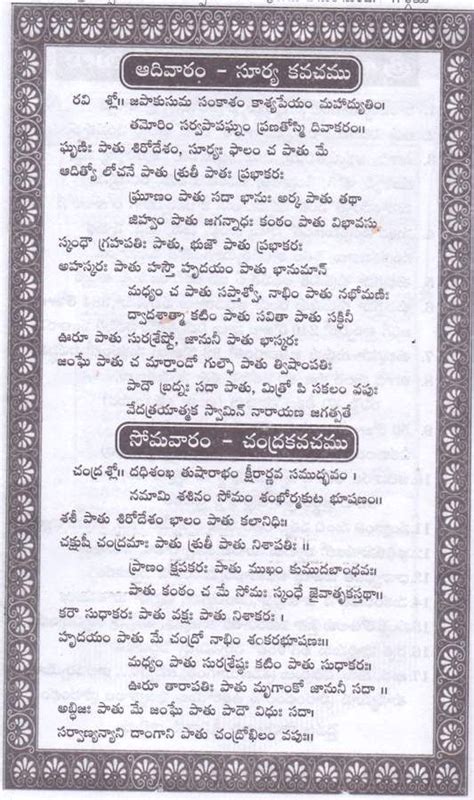 ఆదివారం - సూర్య కవచము
రవి శ్లో॥ జపాకుసుమ సంకాశం కాశ్యపేయం మహాద్యుతిం।
తమోరిం సర్వపాపఘ్నం ప్రణతోస్మి దివాకరం॥
ఘృణిః పాతు శిరోదేశం, సూర్యః ఫాలం చ పాతు మే
ఆదిత్యో లోచనే పాతు శ్రుతీ పాతః ప్రభాకరః
ఘ్రూణం పాతు సదా భానుః అర్క పాతు తథా
జిహ్వం పాతు జగన్నాధః కంఠం పాతు విభావసు
స్కంధౌ గ్రహపతిః పాతు, భుజౌ పాతు ప్రభాకరః
అహస్కరః పాతు హస్తౌ హృదయం పాతు భానుమాన్
మధ్యం చ పాతు సప్తాశ్వో, నాభిం పాతు నభోమణిః
ద్వాదశాత్మా కటిం పాతు సవితా పాతు సక్థినీ
ఊరూ పాతు సురశ్రేష్ఠో, జానునీ పాతు భాస్కరః
జంఘే పాతు చ మార్తాండో గుల్ఫౌ పాతు త్విషాంపతిః
పాదౌ బ్రద్నః సదా పాతు, మిత్రో పి సకలం వపుః
వేదత్రయాత్మక స్వామిన్ నారాయణ జగత్పతే
సోమవారం - చంద్రకవచము
చంద్రశ్లో॥ దధిశంఖ తుషారాభం క్షీరార్ణవ సముద్భవం।
నమామి శశినం సోమం శంభోర్మకుట భూషణం॥
శశీ పాతు శిరోదేశం భాలం పాతు కలానిధిః।
చక్షుషీ చంద్రమాః పాతు శ్రుతీ పాతు నిశాపతిః ॥
ప్రాణం క్షపకరః పాతు ముఖం కుముదబాంధవః।
పాతు కంఠం చ మే సోమః స్కంధే జైవాతృకస్తథా॥
కరౌ సుధాకరః పాతు వక్షః పాతు నిశాకరః।
హృదయం పాతు మే చంద్రో నాభిం శంకరభూషణః॥
మధ్యం పాతు సురశ్రేష్ఠః కటిం పాతు సుధాకరః॥
ఊరూ తారాపతిః పాతు మృగాంకో జానునీ సదా ॥
అబ్ధిజః పాతు మే జంఘే పాతు పాదౌ విధుః సదా।
సర్వాణ్యన్యాని దాంగాని పాతు చంద్రోఖిలం వపుః॥